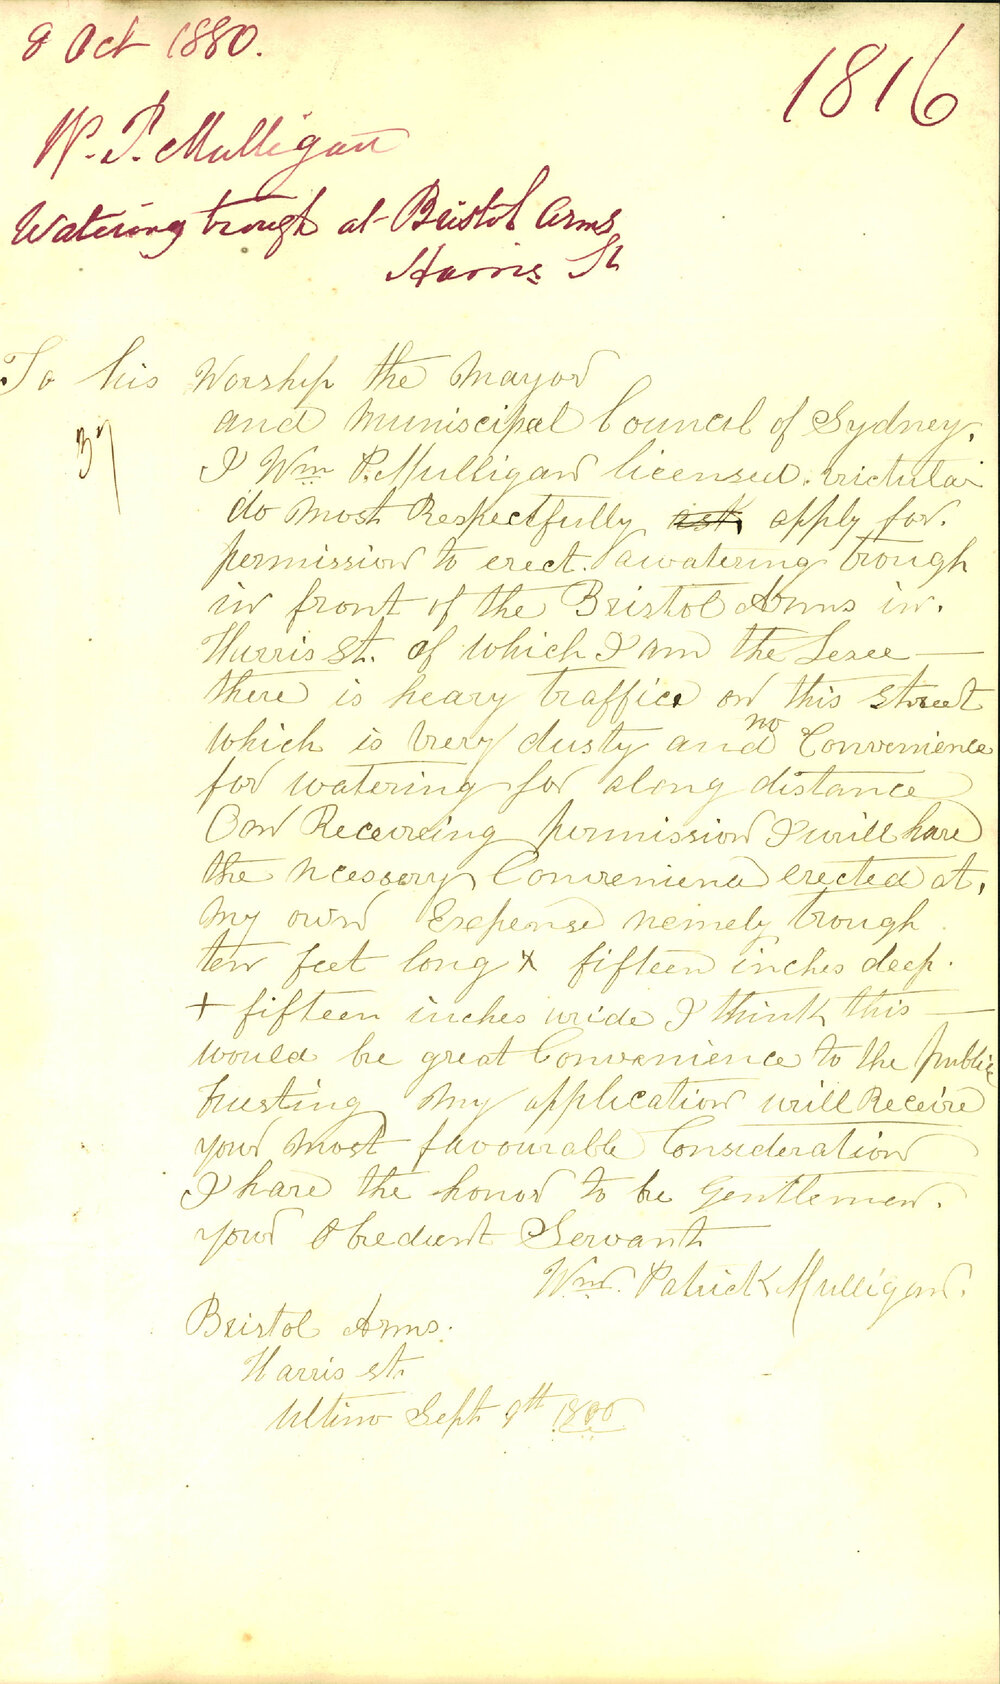 8 Oct 1880.
1816
W. P. Mulligan
Watering trough at Bristol Arms
Harris St
To his Worship the Mayor
and Muniscipal Council of Sydney.
37
I Wm P. Mulligan licensed victular
do most Respectfully ask apply for.
permission to erect. a watering trough
in front of the Bristol Arms in.
Harris St. of which I am the Lesee —
there is heavy traffic on this street
which is very dusty and no Convenience
for watering for along distance
On Receiveing permission I will have
the ncessery Convenience erected at.
my own Expense nemely trough
ten feet long + fifteen inches deep.
+ fifteen inches wide I think this —
would be great Convenience to the public
trusting my application will Receive
your most favourable Consideration
I have the honor to be Gentlemen.
your Obedient Servant
Wm. Patrick Mulligan.
Bristol Arms.
Harris st.
Ultimo Sept 9th 1880